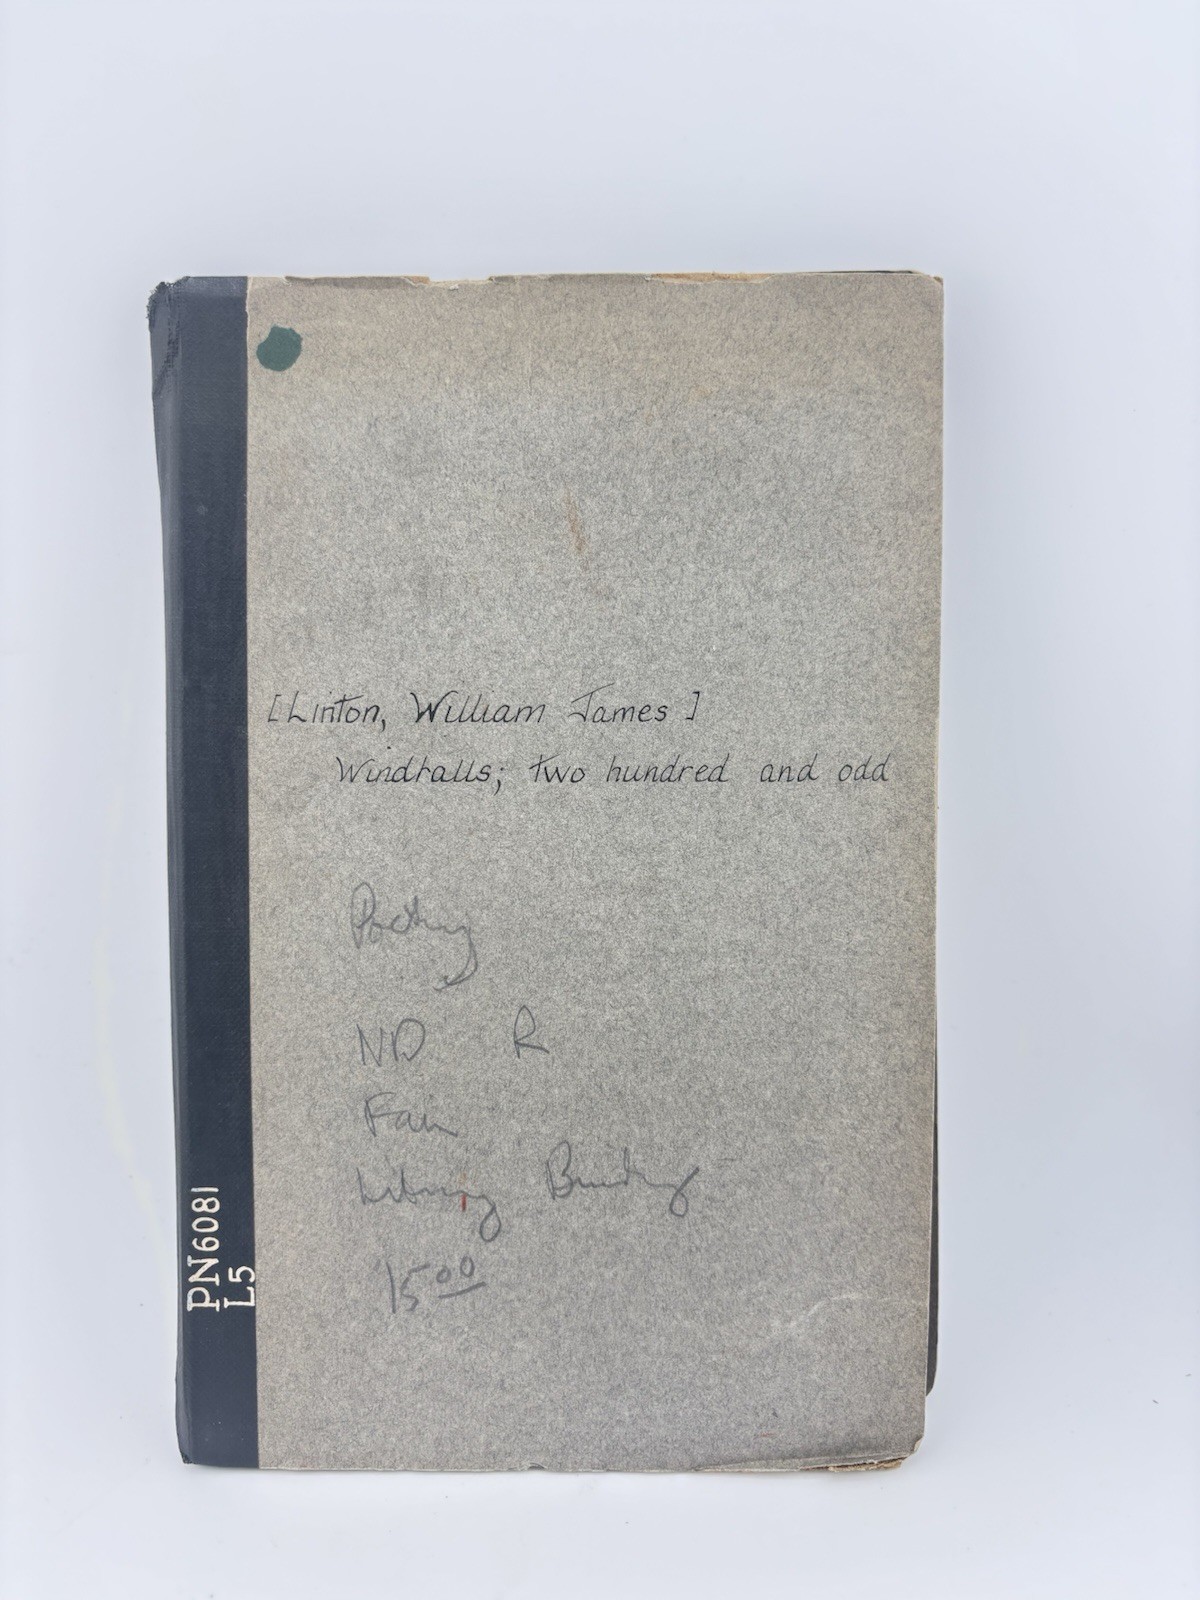 [Linton, William James]
Windfalls; two hundred and odd
Poetry
ND R
Fair
Library Binding
15.00
PN6081
L5